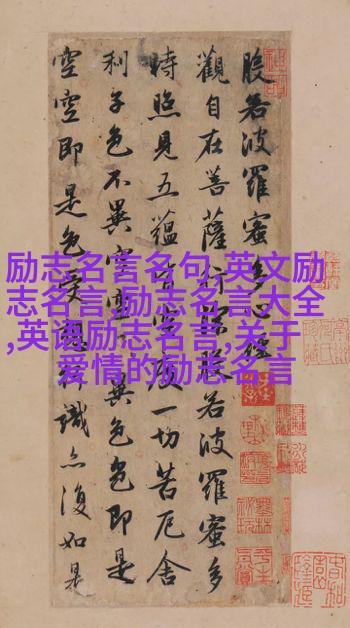 般若波羅蜜多心經
觀自在菩薩行深般若波羅蜜多
時照見五蘊皆空度一切苦厄舍
利子色不異空空不異色色即是
空空即是色受想行識亦復如是
励志名言名句,英文励
志名言,励志名言大全
,英语励志名言,关于
爱情的励志名言